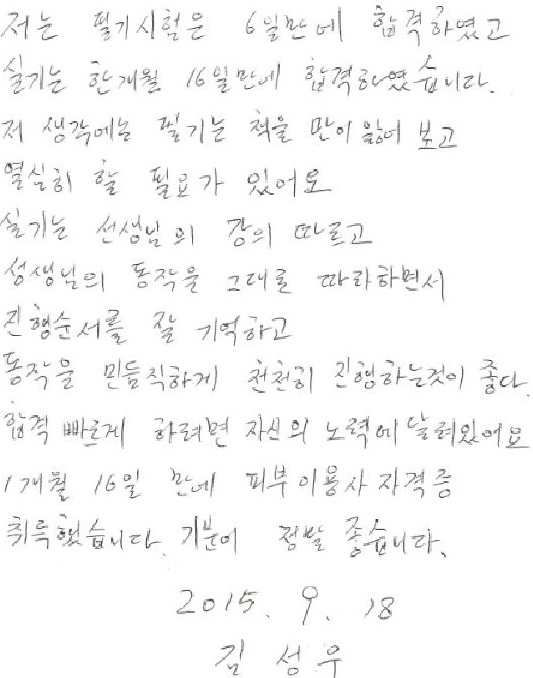 저는 필기시험은 6일만에 합격하였고
실기는 한개월 16일만에 합격하였습니다.
저 생각에는 필기는 책을 만이 잃어 보고
열심히 할 필요가 있어요
실기는 선생님의 강의 따르고
성생님의 동작을 그대로 따라하면서
진행순서를 잘 기억하고
동작을 믿듬직하게 천천히 진행하는것이 좋다.
합격 빠르게 하려면 자신의 노력에 달려있어요
1개월 16일 만에 피부이용사 자격증
취득했습니다. 기분이 정말 좋습니다.
2015. 9. 18
김성우